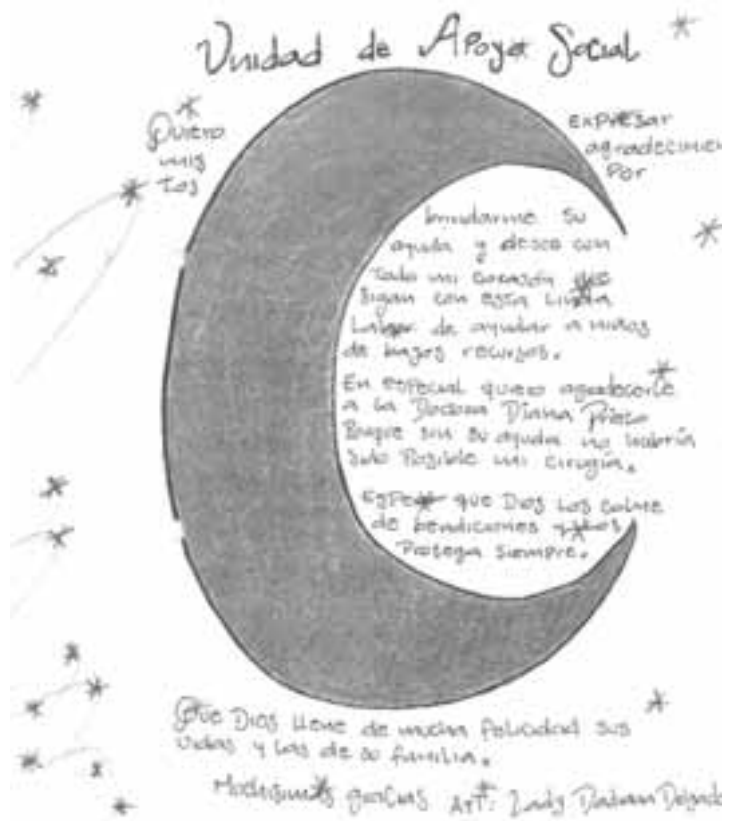 Unidad de Apoyo Social
Quiero expresar
mis agradecimien
tos por
brindarme su
ayuda y deseo con
todo mi corazón que
sigan con esta linda
Labor de ayudar a niños
de bajos recursos.
En especial quiero agradecerle
a la Doctora Diana Prieto
Porque sin su ayuda no habría
sido Posible mi cirugía.
Espero que Dios los colme
de bendiciones y los
Proteja siempre.
Que Dios llene de mucha felicidad sus
vidas y las de su familia.
Muchisimas gracias Att: Lady Delgado